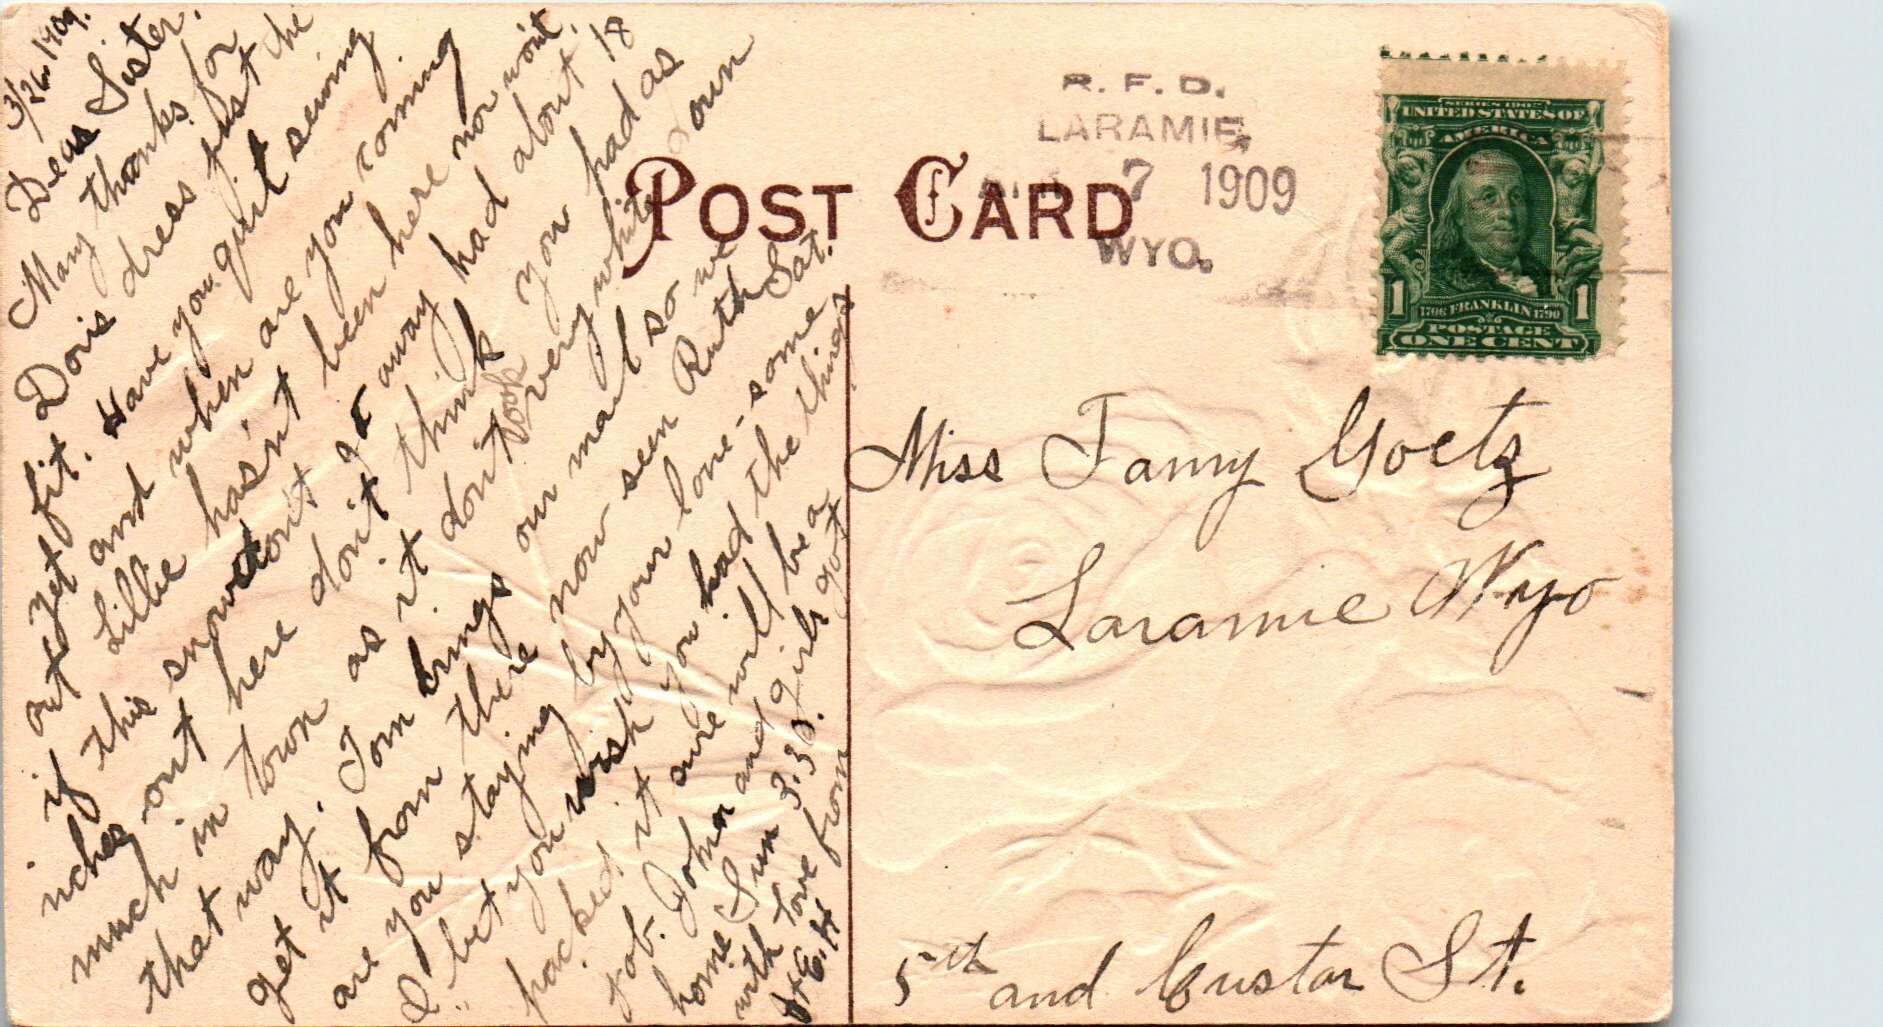 3/26-1909.
Dear Sister.
Many thanks for
Doris dress just the
fit. Have you quit sewing
yet and when are you coming
out Lillie hasn't been here nor won't.
if this snow don't go away had about 18
inches out here don't think you had as
much in town as it don't look very white down
that way. Tom brings our mail so we
get it from there now seen Ruth Sat.
are you staying by your lone-some
I bet you wish you had the things
packed, it sure will be a
job. John and girls got
home Sun 3:30.
with love from
E. H
POST CARD
R. F. D.
LARAMIE,
7 1909
WYO.
SERIES 1902
UNITED STATES OF
AMERICA
1 1706 FRANKLIN 1790 1
POSTAGE
ONE CENT
Miss Fanny Goetz
Laramie Wyo
5th and Custar St.